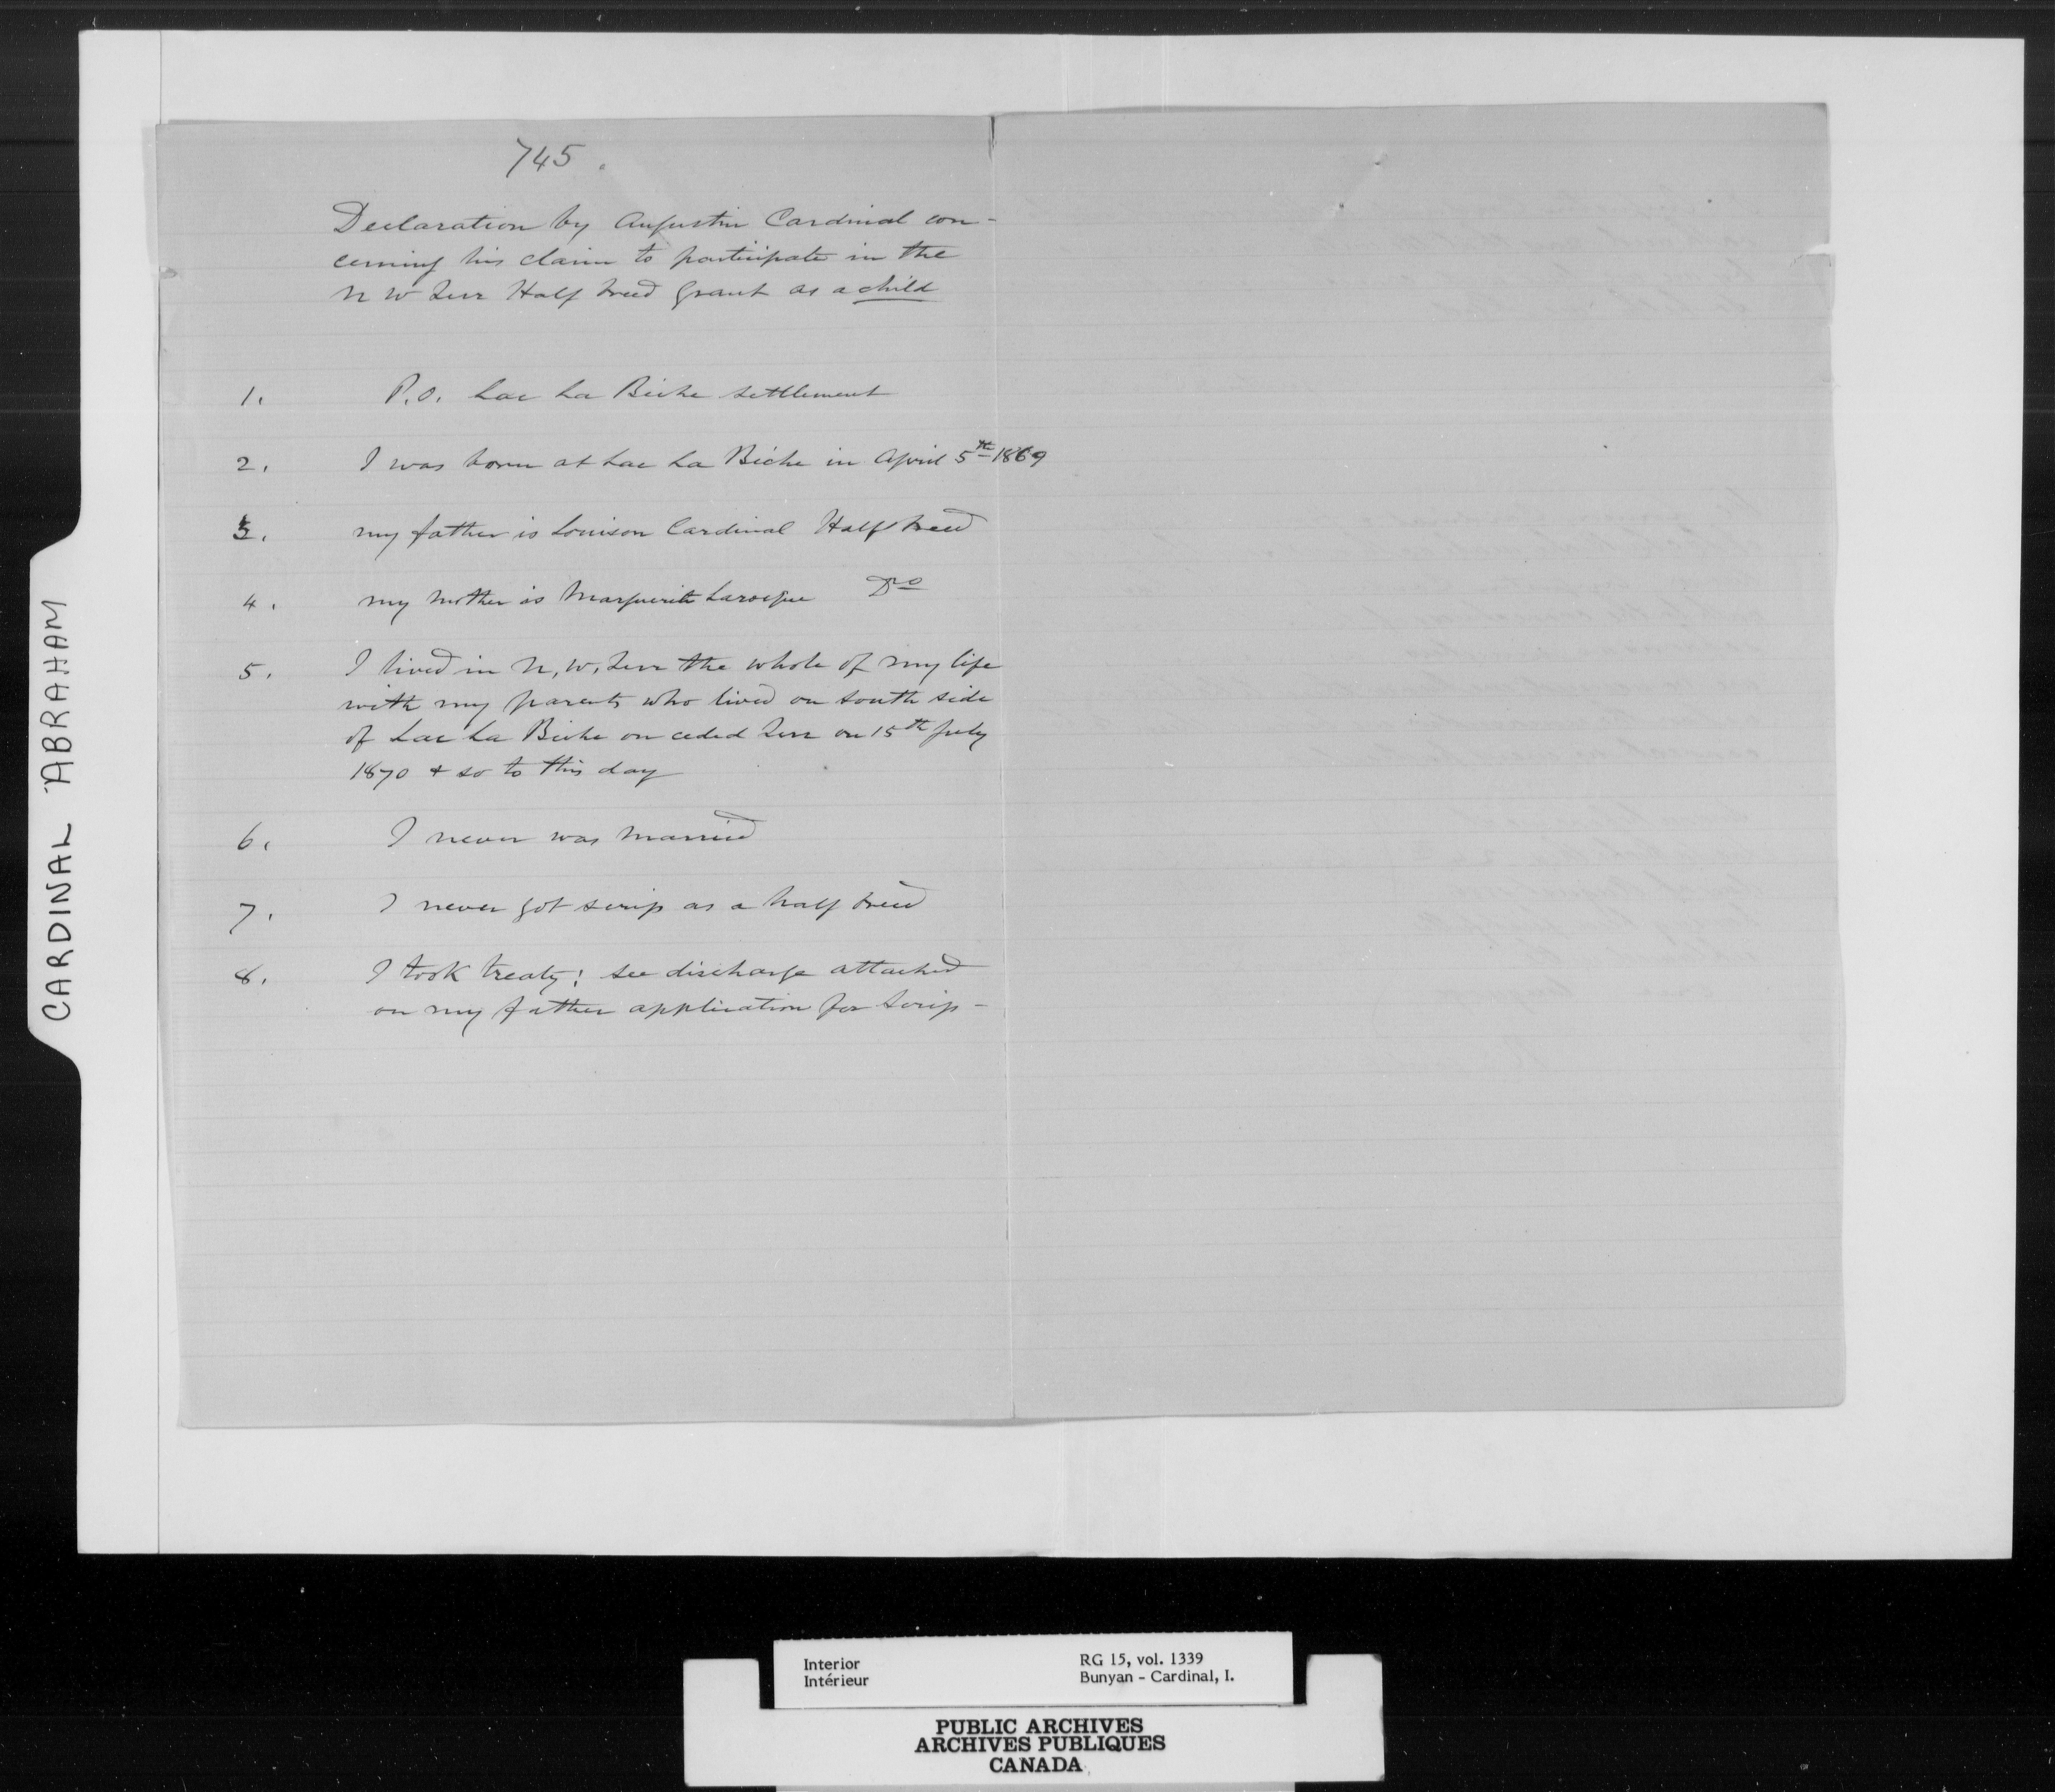 745.
Declaration by Augustin Cardinal con-
cerning his claim to participate in the
N W Terr Half breed grant as a child
1. P.O. Lac La Biche settlement
2. I was born at Lac La Biche in April 5th 1869
3. my father is Louison Cardinal Half breed
4. my mother is Marguerite Larocque Do
5. I lived in N, W, Terr the whole of my life
with my parents who lived on south side
of Lac La Biche on ceded Terr on 15th July
1870 & so to this day
6. I never was married
7. I never got scrip as a half breed
8. I took treaty; see discharge attached
on my father application for Scrip -
CARDINAL ABRAHAM
Interior
Intérieur
RG 15, vol. 1339
Bunyan - Cardinal, I.
PUBLIC ARCHIVES
ARCHIVES PUBLIQUES
CANADA